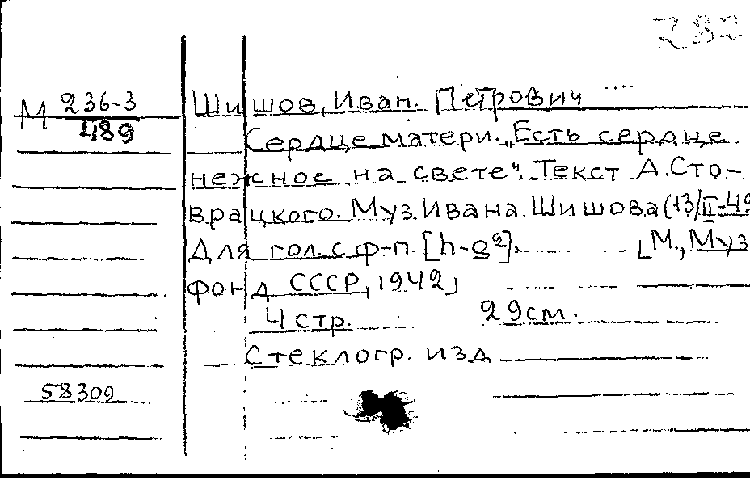 М 236-3
489
Шишов, Иван Петрович
Сердце матери. „Есть сердце
нежное на свете". Текст А. Сто-
врацкого. Муз. Ивана Шишова (13/II-42
Для гол. с ф-п. [h-g²]. [М., Муз
фонд СССР, 1942]
4 стр. 29 см.
Стеклогр. изд
58309